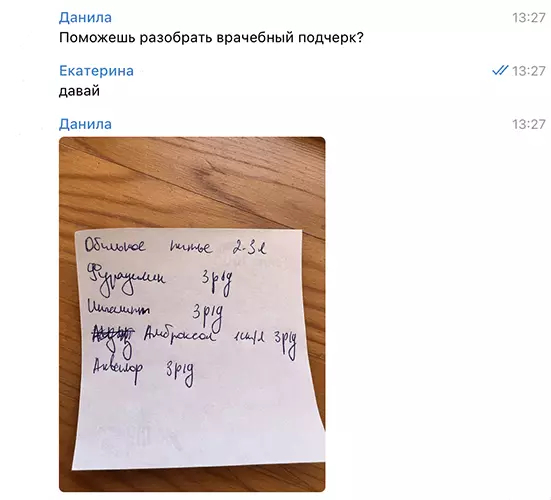 Данила 13:27
Поможешь разобрать врачебный подчерк?
Екатерина 13:27
давай
Данила 13:27
Обильное питье 2-3л
Фурацилин 3 р/д
Ингалипт 3 р/д
Амброксол 1 т 3 р/д
Аквалор 3 р/д